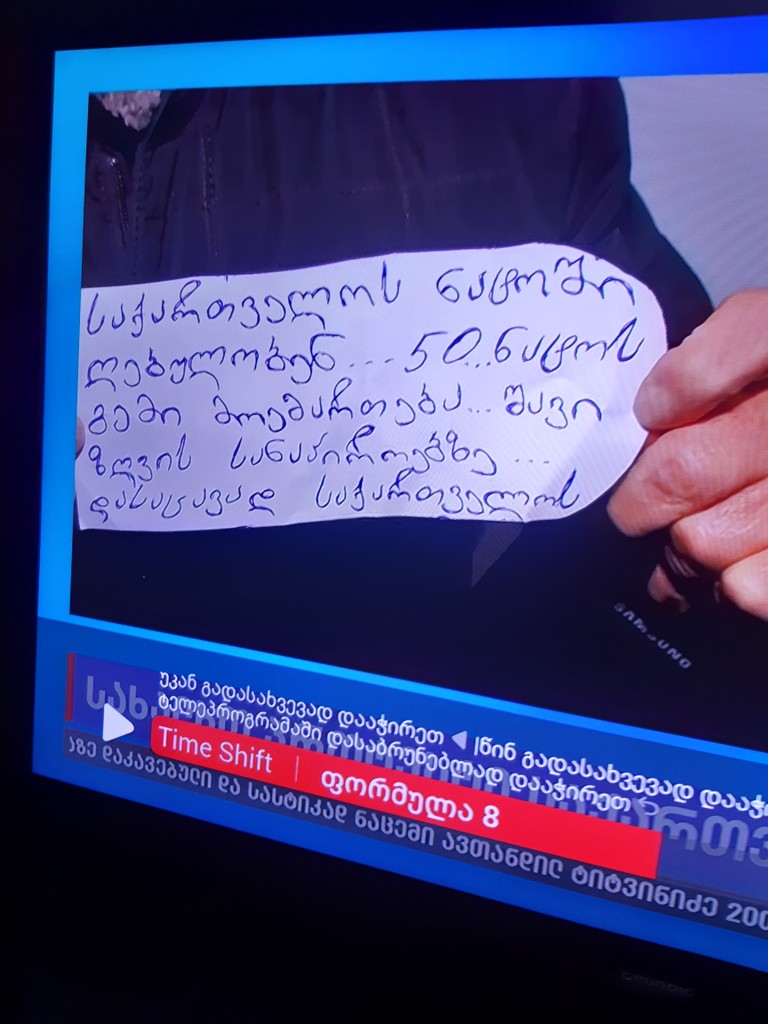 საქართველოს ნატოში
ღებულობენ .... 50... ნატოს
გემი მოემართება... შავი
ზღვის სანაპიროებზე ...
დასაცავად საქართველოს
SAMSUNG
უკან გადასახვევად დააჭირეთ ◀ |წინ გადასახვევად დააჭი
ტელეპროგრამაში დასაბრუნებლად დააჭირეთ
Time Shift | ფორმულა 8
აზე დაკავებული და სასტიკად ნაცემი ავთანდილ ტიტვინიძე 200
GRUNDIG